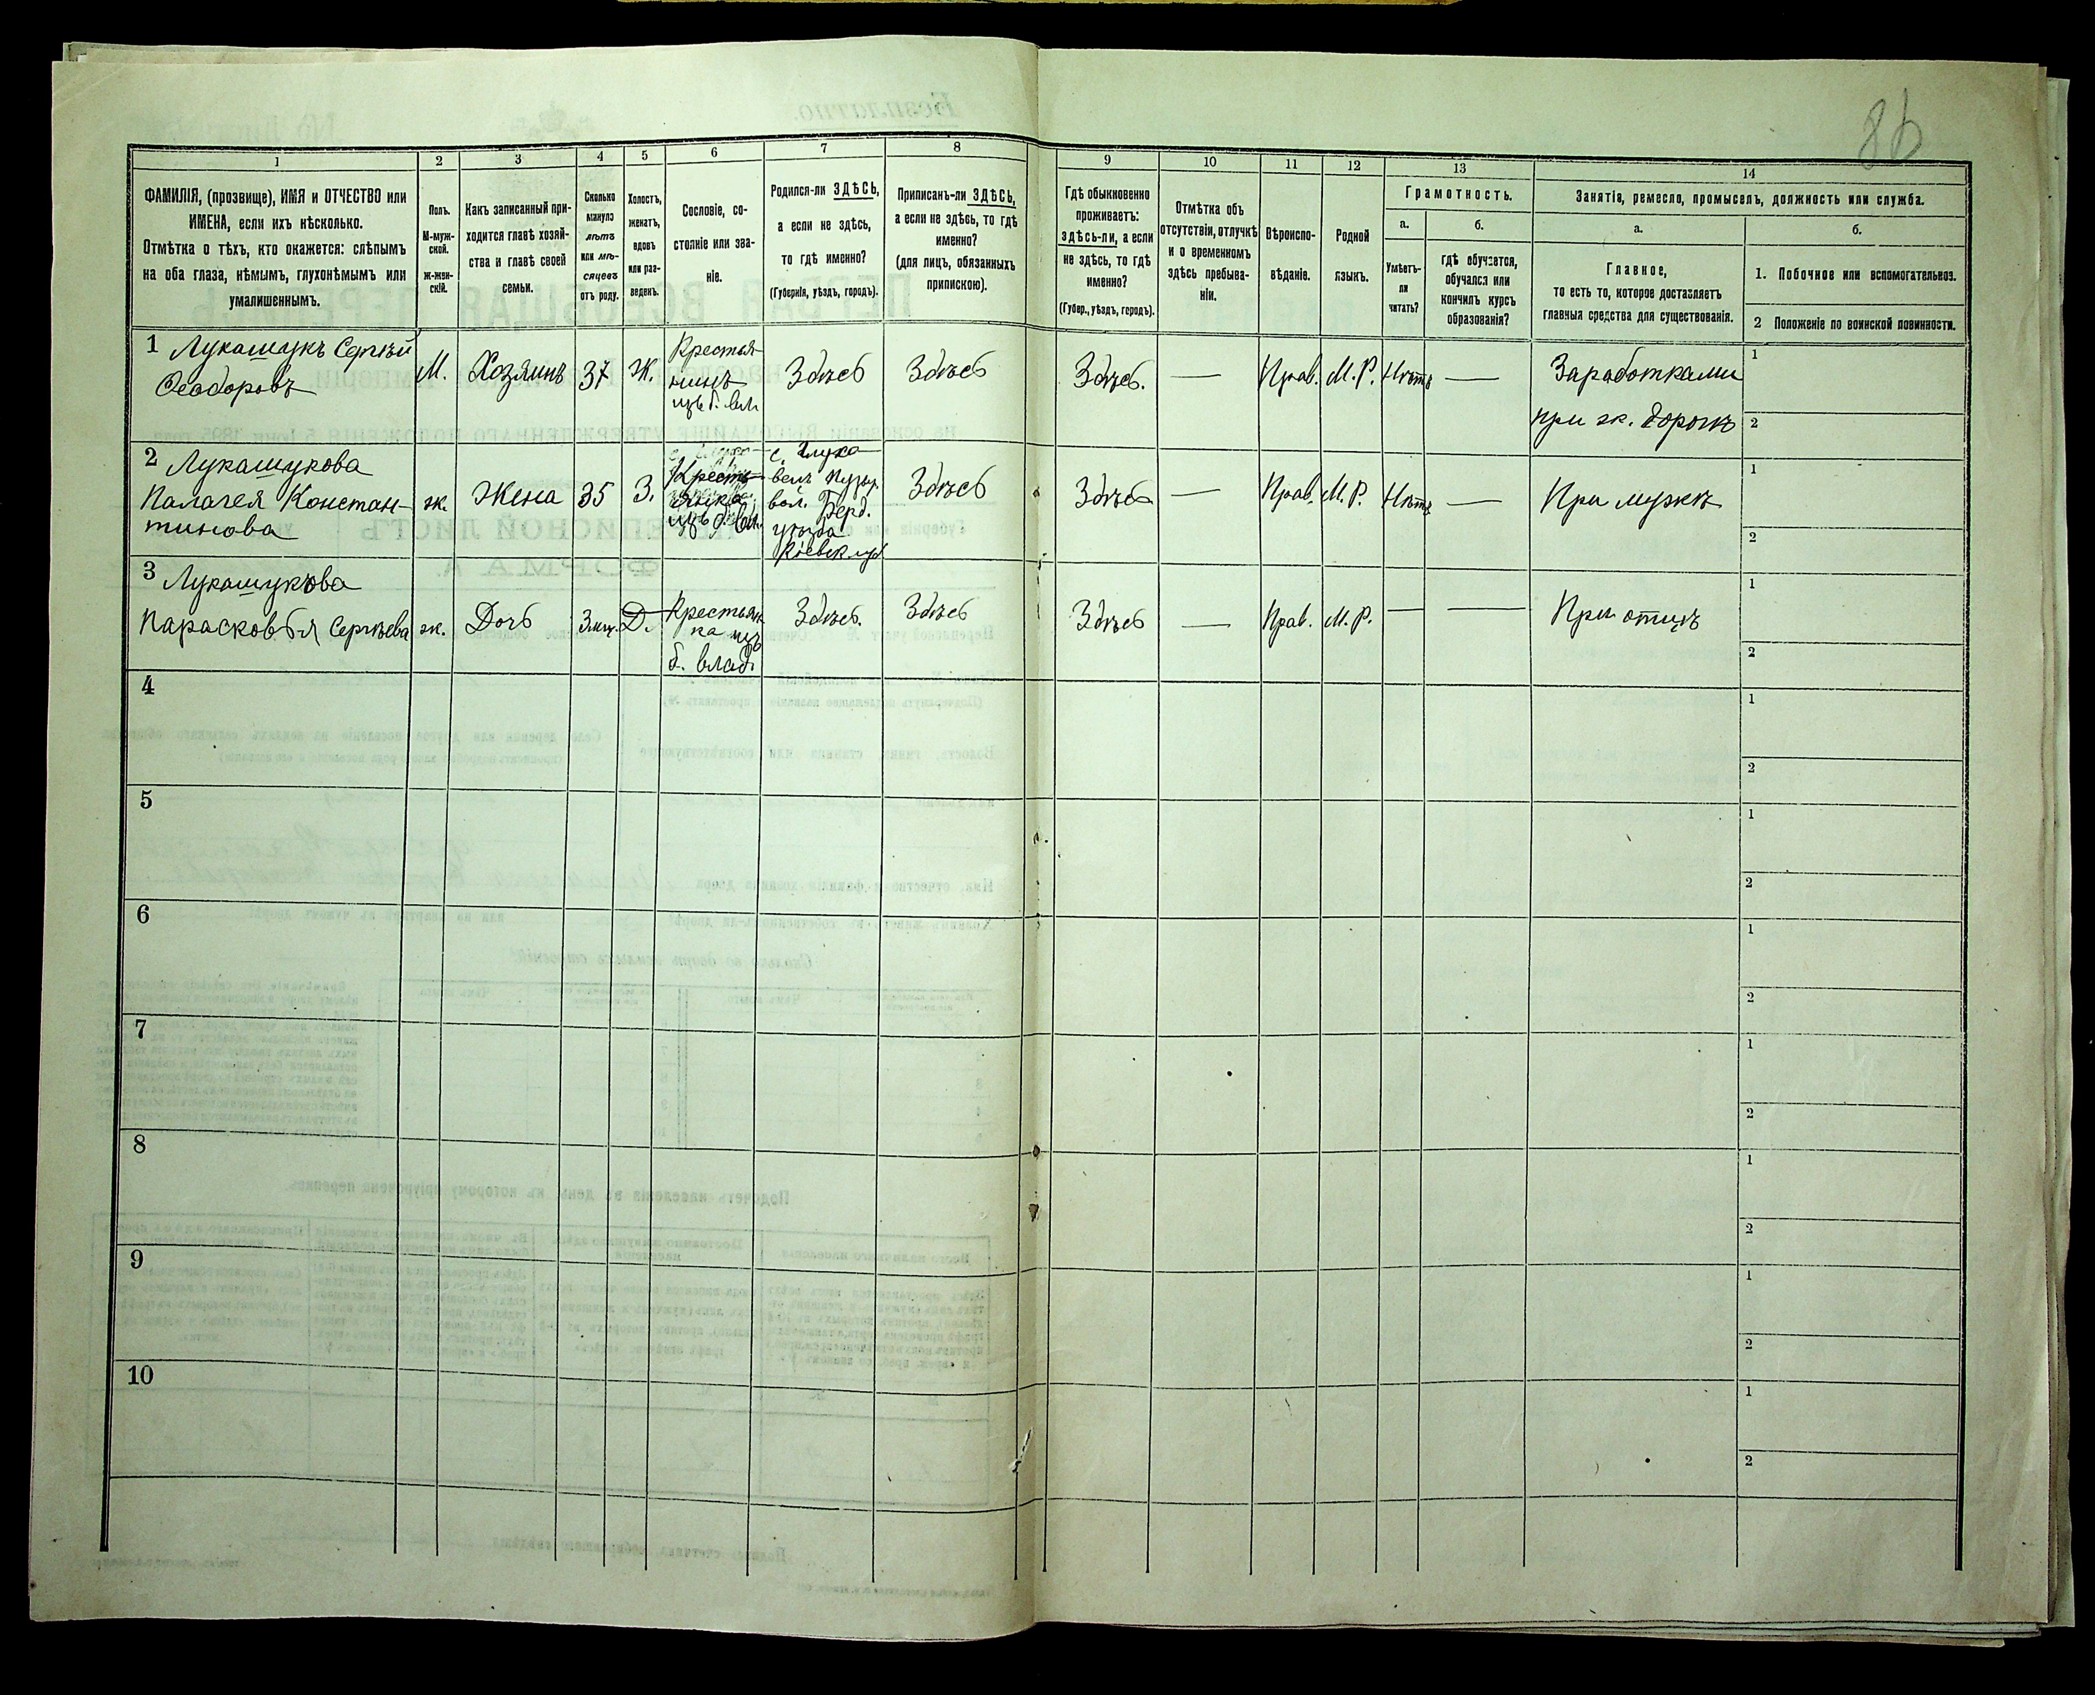 86
1
2
3
4
5
6
7
8
ФАМИЛІЯ, (прозвище), ИМЯ и ОТЧЕСТВО или
ИМЕНА, если ихъ нѣсколько.
Отмѣтка о тѣхъ, кто окажется: слѣпымъ
на оба глаза, нѣмымъ, глухонѣмымъ или
умалишеннымъ.
Полъ.
М-муж-
ской.
ж-жен-
скій.
Какъ записанный при-
ходится главѣ хозяй-
ства и главѣ своей
семьи.
Сколько
минуло
лѣтъ
или мѣ-
сяцевъ
отъ роду.
Холостъ,
женатъ,
вдовъ
или раз-
веденъ.
Сословіе, со-
стояніе или зва-
ніе.
Родился-ли ЗДѢСЬ,
а если не здѣсь,
то гдѣ именно?
(Губернія, уѣздъ, городъ).
Приписанъ-ли ЗДѢСЬ,
а если не здѣсь, то гдѣ
именно?
(для лицъ, обязанныхъ
припискою).
9
10
11
12
13
14
Гдѣ обыкновенно
проживаетъ:
здѣсь-ли, а если
не здѣсь, то гдѣ
именно?
(Губер., уѣздъ, городъ).
Отмѣтка объ
отсутствіи, отлучкѣ
и о временномъ
здѣсь пребыва-
ніи.
Вѣроиспо-
вѣданіе.
Родной
языкъ.
Грамотность.
а.
Умѣетъ-
ли
читать?
б.
гдѣ обучается,
обучался или
кончилъ курсъ
образованія?
Занятія, ремесло, промыселъ, должность или служба.
а.
Главное,
то есть то, которое доставляетъ
главныя средства для существованія.
б.
1. Побочное или вспомогательное.
2 Положеніе по воинской повинности.
1 Лукашукъ Сергѣй
Ѳеодоровъ
М.
Хозяинъ
37
Ж.
Крестья-
нинъ
изъ б. вл.
Здѣсь
Здѣсь
Здѣсь.
—
Прав.
М.Р.
Нѣтъ
—
Заработками
при ж. дорогѣ
1
2
2 Лукашукова
Палагея Констан-
тинова
ж.
Жена
35
З.
Кресть-
янка
изъ б. вл.
с. Глухо-
вол. Берд.
уѣзда
Кіевск. губ
Здѣсь
Здѣсь
—
Прав.
М.Р.
Нѣтъ
—
При мужѣ
1
2
3 Лукашукова
Парасковья Сергѣева
ж.
Дочь
3 мц.
Д.
Крестьян-
ка изъ
б. влад.
Здѣсь.
Здѣсь
Здѣсь
—
Прав.
М.Р.
—
—
При отцѣ
1
2
4
1
2
5
1
2
6
1
2
7
1
2
8
1
2
9
1
2
10
1
2